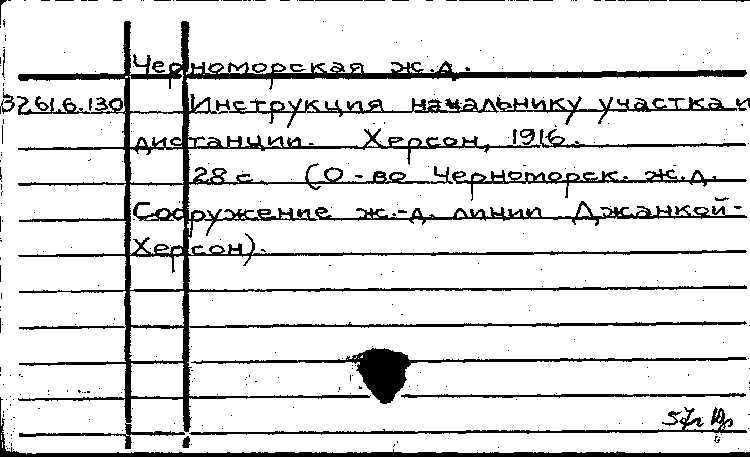 Черноморская ж.д.
3261.6.130 Инструкция начальнику участка и
дистанции. Херсон, 1916.
28 с. (О-во Черноморск. ж.д.
Сооружение ж.-д. линии Джанкой-
Херсон).